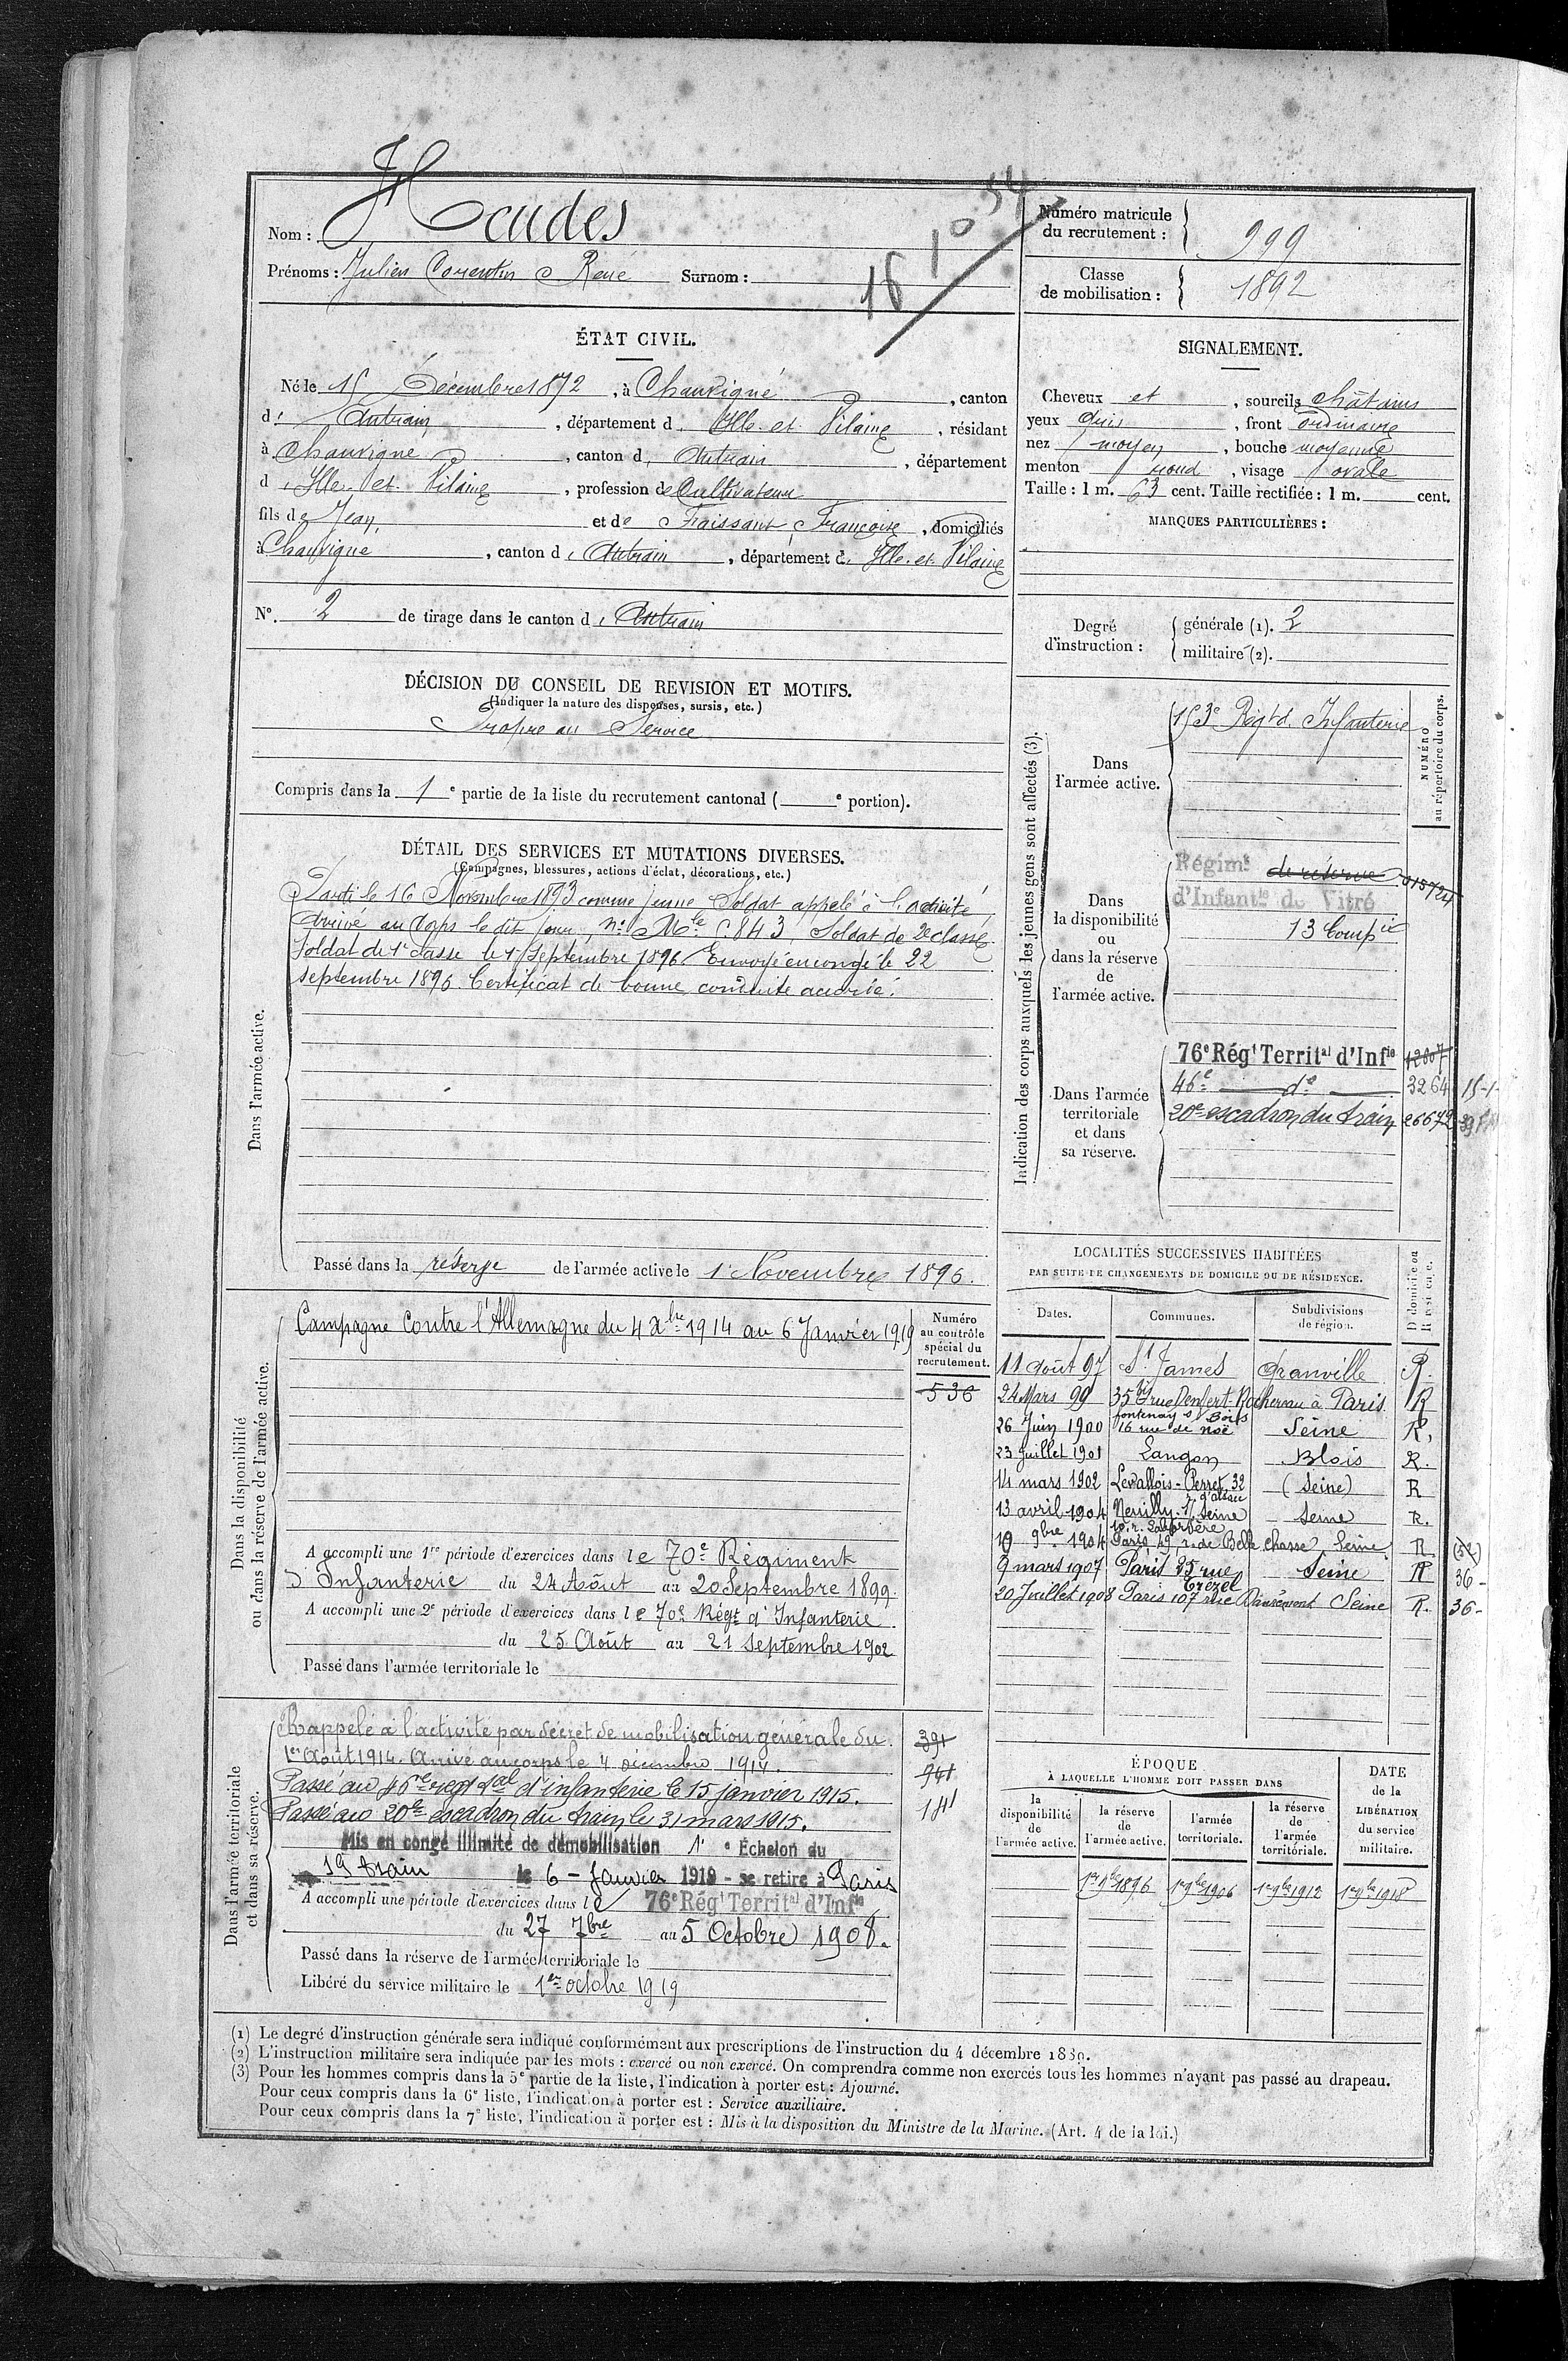 Nom : Heudes
Prénoms : Julien Corentin René Surnom :
16 10 54
Numéro matricule du recrutement : 999
Classe de mobilisation : 1892
ÉTAT CIVIL.
Né le 15 Décembre 1872, à Chauvigné, canton
d'Antrain, département d'Ille-et-Vilaine, résidant
à Chauvigné, canton d'Antrain, département
d'Ille-et-Vilaine, profession de Cultivateur
fils de Jean et de Fraissant Françoise, domiciliés
à Chauvigné, canton d'Antrain, département d'Ille-et-Vilaine
N° 2 de tirage dans le canton d'Antrain
SIGNALEMENT.
Cheveux et, sourcils châtains
yeux gris, front ordinaire
nez moyen, bouche moyenne
menton rond, visage ovale
Taille : 1 m. 63 cent. Taille rectifiée : 1 m. cent.
MARQUES PARTICULIÈRES :
Degré d'instruction : générale (1). 2
militaire (2).
DÉCISION DU CONSEIL DE REVISION ET MOTIFS.
(Indiquer la nature des dispenses, sursis, etc.)
Propre au Service
Compris dans la 1e partie de la liste du recrutement cantonal ( e portion).
DÉTAIL DES SERVICES ET MUTATIONS DIVERSES.
(Campagnes, blessures, actions d'éclat, décorations, etc.)
Dans l'armée active.
Parti le 16 Novembre 1893 comme jeune Soldat appelé à l'activité
Arrivé au Corps le dit jour, n° Mle 843, Soldat de 2e classe.
Soldat de 1e classe le 1er Septembre 1896. Envoyé en congé le 22
septembre 1896. Certificat de bonne conduite accordé.
Passé dans la réserve de l'armée active le 1er Novembre 1896.
Indication des corps auxquels les jeunes gens sont affectés (3).
NUMÉRO au répertoire du corps.
Dans l'armée active.
153e Régt d'Infanterie
Dans la disponibilité ou dans la réserve de l'armée active.
Régimt de réserve 015724
d'Infantie de Vitré
13 Compie
Dans l'armée territoriale et dans sa réserve.
76e Régt Territal d'Infie 12007
46e do 3264 15-1-
20e escadron du train 26672
LOCALITÉS SUCCESSIVES HABITÉES
PAR SUITE DE CHANGEMENTS DE DOMICILE OU DE RÉSIDENCE.
Dates. Communes. Subdivisions de région. Domicile ou Résidence.
11 Août 97 St James Granville R.
24 Mars 99 35 bis rue Denfert-Rochereau à Paris R
26 Juin 1900 Fontenay s/ Bois 16 rue de Noë Seine R.
23 Juillet 1901 Langon Blois R.
14 mars 1902 Levallois-Perret, 32 r. d'Alsace (Seine) R
13 avril 1904 Neuilly s/ Seine Seine R.
19 9bre 1904 Paris, 49 r. de Bellechasse Seine R (52)
9 mars 1907 Paris 25 rue Trezel Seine R 36-
20 Juillet 1908 Paris 107 rue Damrémont Seine R. 36-
Dans la disponibilité ou dans la réserve de l'armée active.
Numéro au contrôle spécial du recrutement.
536
Campagne Contre l'Allemagne du 4 Xbre 1914 au 6 Janvier 1919
A accompli une 1re période d'exercices dans le 70e Régiment
d'Infanterie du 24 Août au 20 Septembre 1899.
A accompli une 2e période d'exercices dans le 70e Régt d'Infanterie
du 25 Août au 21 Septembre 1902
Passé dans l'armée territoriale le
Dans l'armée territoriale et dans sa réserve.
Rappelé à l'activité par décret de mobilisation générale du 391
1er Août 1914. Arrivé au corps le 4 décembre 1914.
Passé au 46e regt teal d'infanterie le 15 janvier 1915.
Passé au 20e escadron du train le 31 mars 1915.
Mis en congé illimité de démobilisation 1e Échelon du
19 train le 6 - Janvier 1919 - se retire à Paris
A accompli une période d'exercices dans le 76e Régt Territal d'Infie
du 27 7bre au 5 Octobre 1908.
Passé dans la réserve de l'armée territoriale le
Libéré du service militaire le 1er octobre 1919
ÉPOQUE
À LAQUELLE L'HOMME DOIT PASSER DANS
la disponibilité de l'armée active. la réserve de l'armée active. l'armée territoriale. la réserve de l'armée territoriale. DATE de la LIBÉRATION du service militaire.
1er 9bre 1896 1er 9bre 1906 1er 9bre 1912 1er 9bre 1918
(1) Le degré d'instruction générale sera indiqué conformément aux prescriptions de l'instruction du 4 décembre 1889.
(2) L'instruction militaire sera indiquée par les mots : exercé ou non exercé. On comprendra comme non exercés tous les hommes n'ayant pas passé au drapeau.
(3) Pour les hommes compris dans la 5e partie de la liste, l'indication à porter est : Ajourné.
Pour ceux compris dans la 6e liste, l'indication à porter est : Service auxiliaire.
Pour ceux compris dans la 7e liste, l'indication à porter est : Mis à la disposition du Ministre de la Marine. (Art. 4 de la loi.)